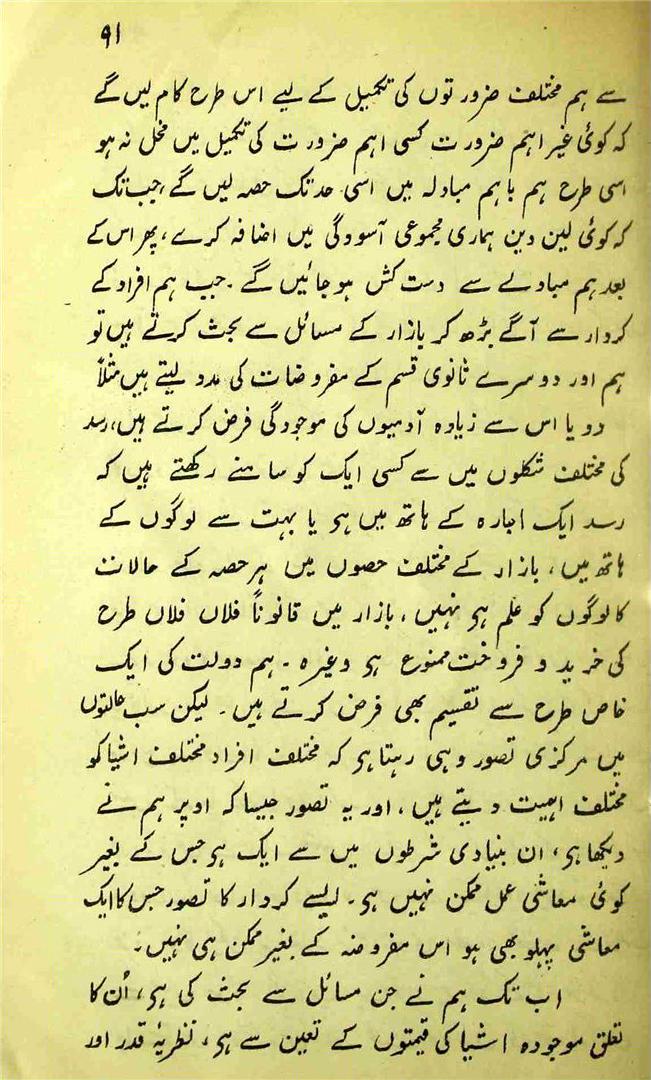 ۹۱
سے ہم مختلف ضرورتوں کی تکمیل کے لیے اس طرح کام لیں گے
کہ کوئی غیر اہم ضرورت کسی اہم ضرورت کی تکمیل میں مخل نہ ہو
اسی طرح ہم باہم مبادلہ میں اسی حد تک حصہ لیں گے، جب تک
کہ کوئی لین دین ہماری مجموعی آسودگی میں اضافہ کرے، پھر اس کے
بعد ہم مبادلے سے دست کش ہو جائیں گے۔ جب ہم افراد کے
کردار سے آگے بڑھ کر بازار کے مسائل سے بحث کرتے ہیں تو
ہم اور دوسرے ثانوی قسم کے مفروضات کی مدد لیتے ہیں مثلاً
دو یا اس سے زیادہ آدمیوں کی موجودگی فرض کرتے ہیں، رسد
کی مختلف شکلوں میں سے کسی ایک کو سامنے رکھتے ہیں کہ
رسد ایک اجارہ کے ہاتھ میں ہی یا بہت سے لوگوں کے
ہاتھ میں، بازار کے مختلف حصوں میں ہر حصہ کے حالات
کا لوگوں کو علم ہی نہیں، بازار میں قانوناً فلاں فلاں طرح
کی خرید و فروخت ممنوع ہی وغیرہ۔ ہم دولت کی ایک
خاص طرح سے تقسیم بھی فرض کرتے ہیں۔ لیکن سب حالتوں
میں مرکزی تصور وہی رہتا ہی کہ مختلف افراد مختلف اشیا کو
مختلف اہمیت دیتے ہیں، اور یہ تصور جیسا کہ اوپر ہم نے
دیکھا ہی، ان بنیادی شرطوں میں سے ایک ہی جس کے بغیر
کوئی معاشی عمل ممکن نہیں ہی۔ ایسے کردار کا تصور جس کا ایک
معاشی پہلو بھی ہو اس مفروضہ کے بغیر ممکن ہی نہیں۔
اب تک ہم نے جن مسائل سے بحث کی ہی، اُن کا
تعلق موجودہ اشیا کی قیمتوں کے تعین سے ہی، نظریۂ قدر اور